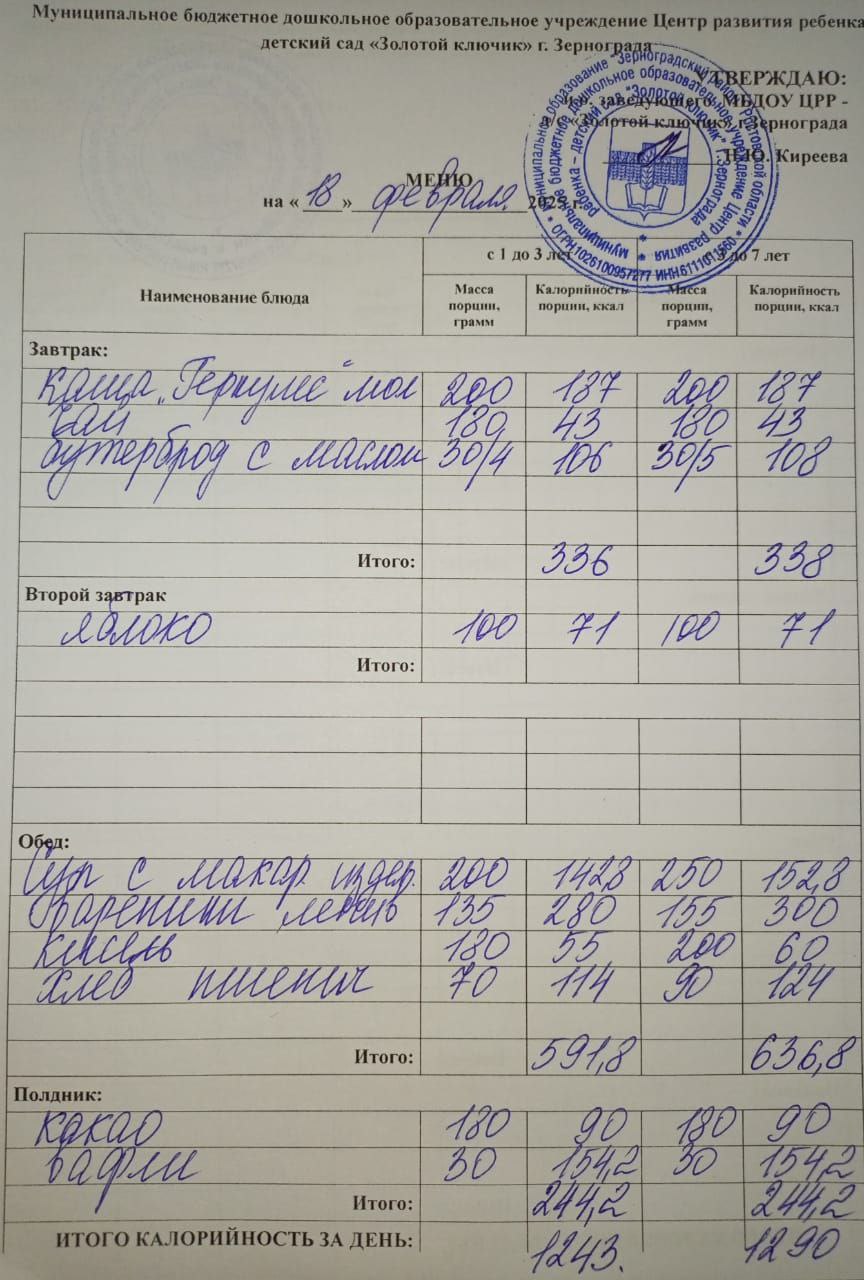 Муниципальное бюджетное дошкольное образовательное учреждение Центр развития ребенка
детский сад «Золотой ключик» г. Зернограда
УТВЕРЖДАЮ:
и.о. заведующего МБДОУ ЦРР -
д/с «Золотой ключик» г. Зернограда
Н.Ю. Киреева
МЕНЮ
на « 18 » февраля 2025 г.
Наименование блюда с 1 до 3 лет с 3 до 7 лет
Масса порции, грамм Калорийность порции, ккал Масса порции, грамм Калорийность порции, ккал
Завтрак:
Каша „Геркулес" мол 200 187 200 187
Чай 180 43 180 43
бутерброд с маслом 30/4 106 30/5 108
Итого: 336 338
Второй завтрак
яблоко 100 71 100 71
Итого:
Обед:
Суп с макар. издел. 200 142,8 250 152,8
Вареники ленив 135 280 155 300
кисель 180 55 200 60
хлеб пшенич 70 114 90 124
Итого: 591,8 636,8
Полдник:
какао 180 90 180 90
вафли 30 154,2 30 154,2
Итого: 244,2 244,2
ИТОГО КАЛОРИЙНОСТЬ ЗА ДЕНЬ: 1243. 1290
Муниципальное образование "Зерноградский район" Ростовской области * ОГРН 1026100957277 ИНН 6111011560 *
муниципальное бюджетное дошкольное образовательное учреждение Центр развития
ребенка – детский сад "Золотой ключик" г. Зернограда